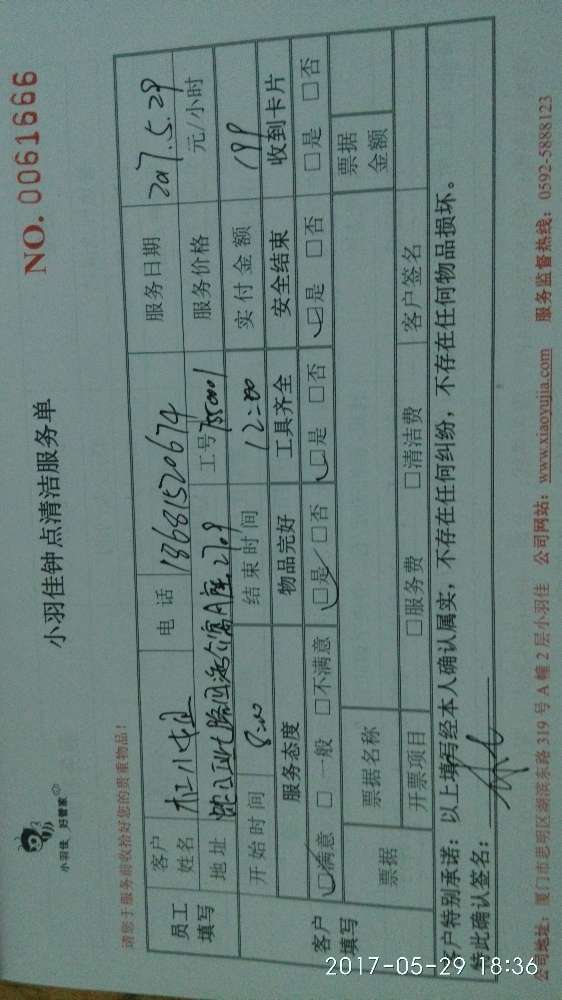 小羽佳 好管家
小羽佳钟点清洁服务单
NO. 0061666
请您于服务前收拾好您的贵重物品!
员工填写
客户姓名 电话 18681520674 服务日期 2017.5.29
地址 工号 服务价格 元/小时
开始时间 8:00 结束时间 12:00 实付金额 199
客户填写
服务态度 物品完好 工具齐全 安全结束 收到卡片
□满意 □一般 □不满意 □是 □否 □是 □否 □是 □否 □是 □否
票据 票据名称 票据金额
开票项目 □服务费 □清洁费 客户签名
客户特别承诺:以上填写经本人确认属实,不存在任何纠纷,不存在任何物品损坏。
特此确认签名:
公司地址:厦门市思明区湖滨东路319号A幢2层小羽佳 公司网站:www.xiaoyujia.com 服务监督热线:0592-5888123
2017-05-29 18:36